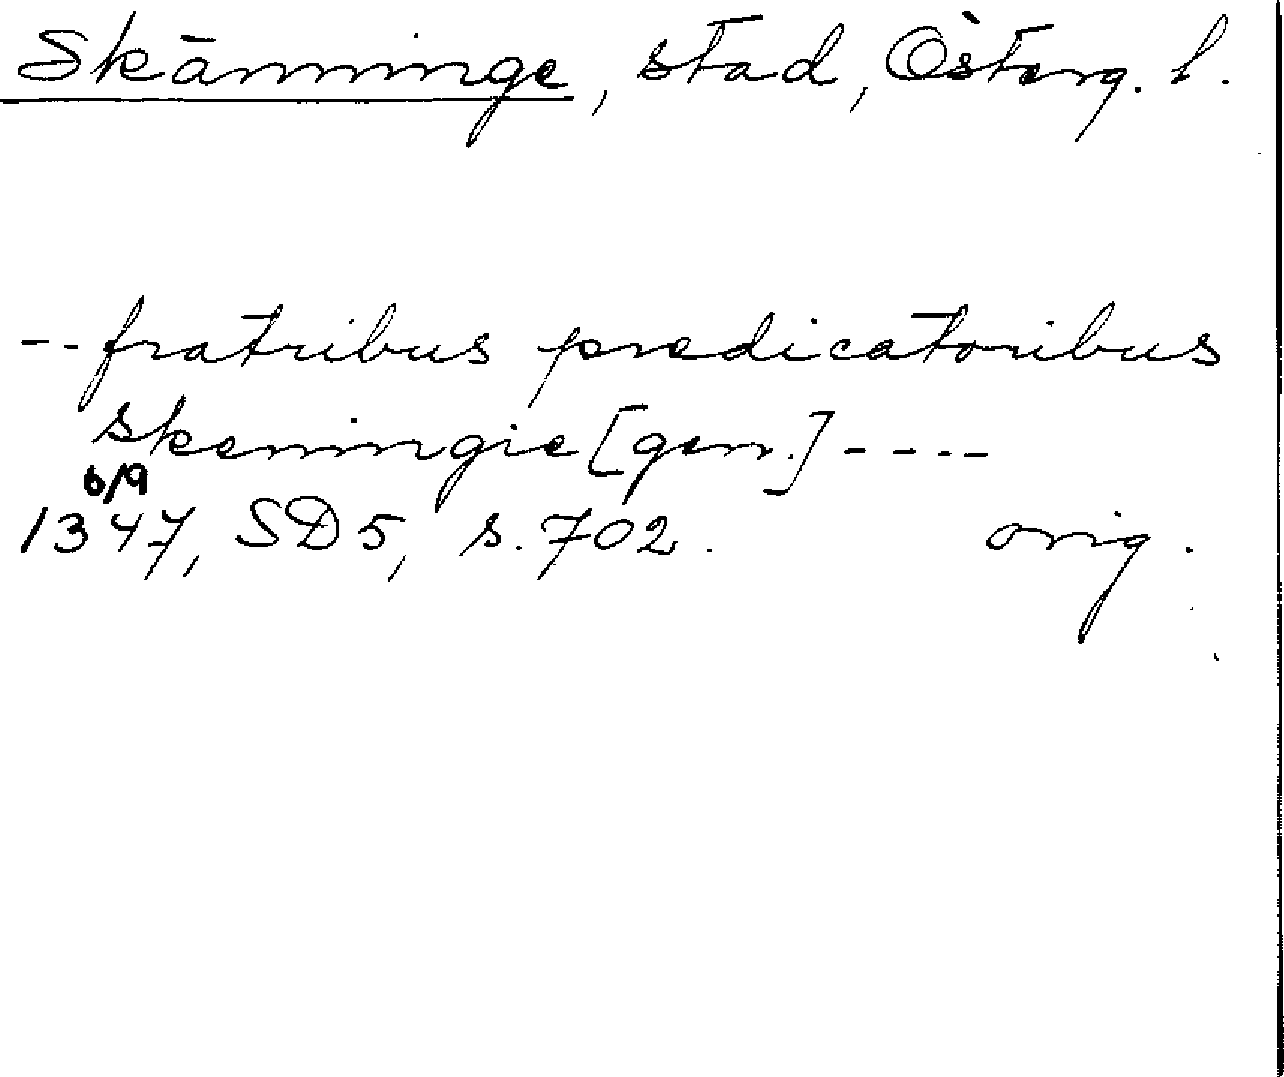 Skänninge, stad, Österg. l.
-- fratribus predicatoribus
skeningie [gen.] ----
6/9
1347, SD 5, s. 702. orig.